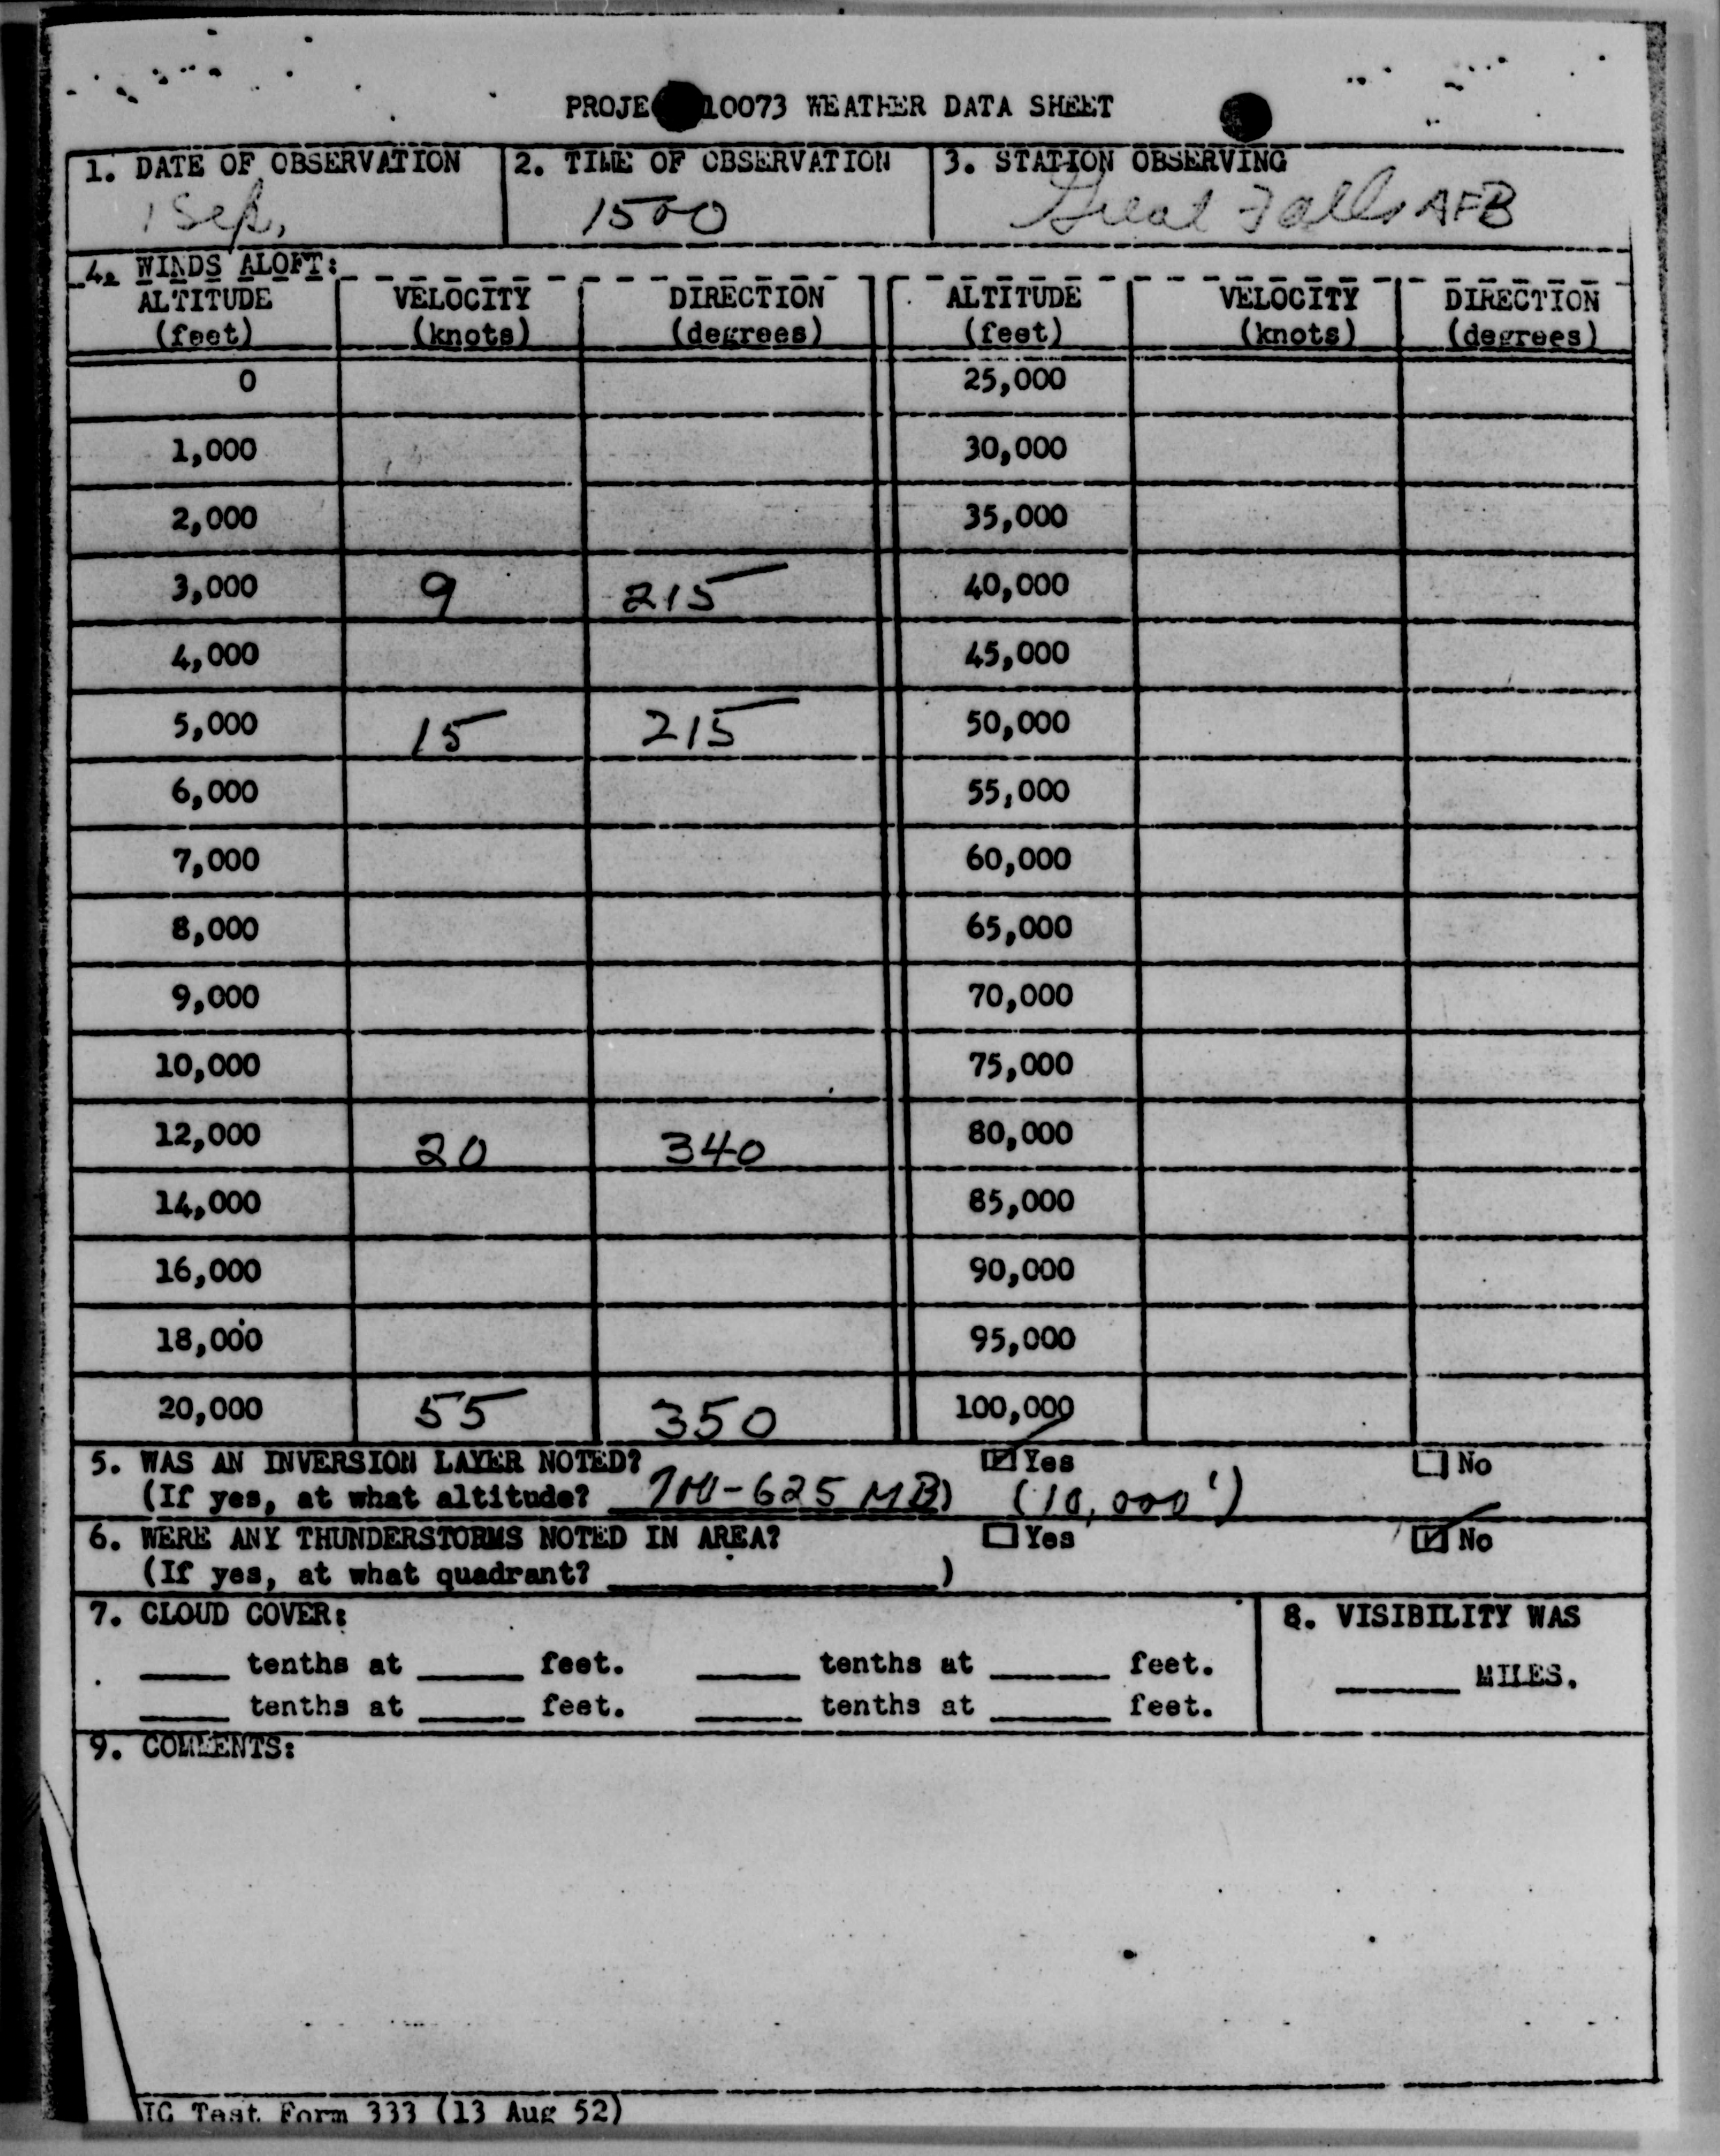 PROJE 10073 WEATHER DATA SHEET
1. DATE OF OBSERVATION 2. TIME OF OBSERVATION 3. STATION OBSERVING
1 Sep, 1500 Great Falls AFB
4. WINDS ALOFT:
ALTITUDE VELOCITY DIRECTION ALTITUDE VELOCITY DIRECTION
(feet) (knots) (degrees) (feet) (knots) (degrees)
0 25,000
1,000 30,000
2,000 35,000
3,000 9 215 40,000
4,000 45,000
5,000 15 215 50,000
6,000 55,000
7,000 60,000
8,000 65,000
9,000 70,000
10,000 75,000
12,000 20 340 80,000
14,000 85,000
16,000 90,000
18,000 95,000
20,000 55 350 100,000
5. WAS AN INVERSION LAYER NOTED? Yes No
(If yes, at what altitude? 700-625 MB) (10,000')
6. WERE ANY THUNDERSTORMS NOTED IN AREA? Yes No
(If yes, at what quadrant? )
7. CLOUD COVER: 8. VISIBILITY WAS
tenths at feet. tenths at feet. MILES.
tenths at feet. tenths at feet.
9. COMMENTS:
IC Test Form 333 (13 Aug 52)